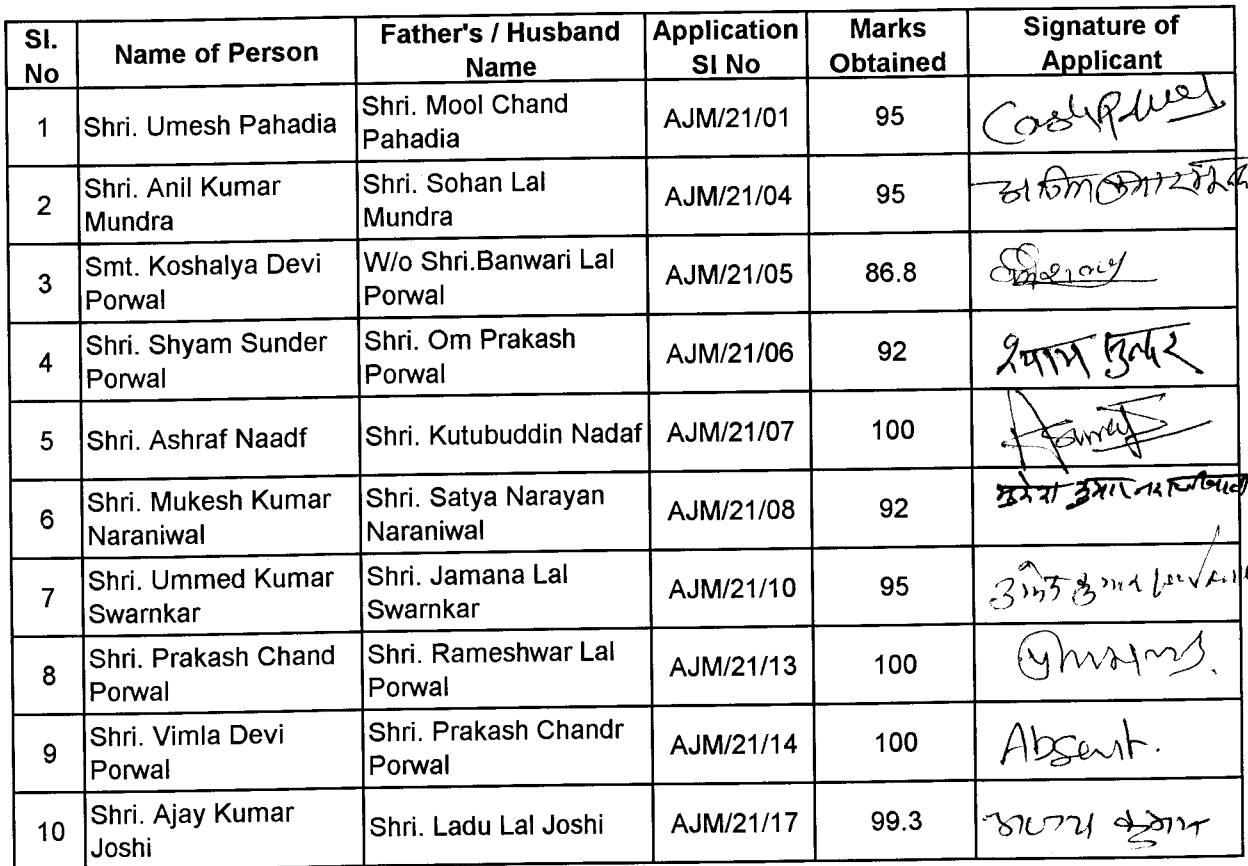 Sl. No | Name of Person | Father's / Husband Name | Application Sl No | Marks Obtained | Signature of Applicant
1 | Shri. Umesh Pahadia | Shri. Mool Chand Pahadia | AJM/21/01 | 95
2 | Shri. Anil Kumar Mundra | Shri. Sohan Lal Mundra | AJM/21/04 | 95
3 | Smt. Koshalya Devi Porwal | W/o Shri.Banwari Lal Porwal | AJM/21/05 | 86.8
4 | Shri. Shyam Sunder Porwal | Shri. Om Prakash Porwal | AJM/21/06 | 92 | श्याम सुन्दर
5 | Shri. Ashraf Naadf | Shri. Kutubuddin Nadaf | AJM/21/07 | 100
6 | Shri. Mukesh Kumar Naraniwal | Shri. Satya Narayan Naraniwal | AJM/21/08 | 92 | मुकेश कुमार नराणीवाल
7 | Shri. Ummed Kumar Swarnkar | Shri. Jamana Lal Swarnkar | AJM/21/10 | 95
8 | Shri. Prakash Chand Porwal | Shri. Rameshwar Lal Porwal | AJM/21/13 | 100
9 | Shri. Vimla Devi Porwal | Shri. Prakash Chandr Porwal | AJM/21/14 | 100 | Absent.
10 | Shri. Ajay Kumar Joshi | Shri. Ladu Lal Joshi | AJM/21/17 | 99.3 | अजय कुमार